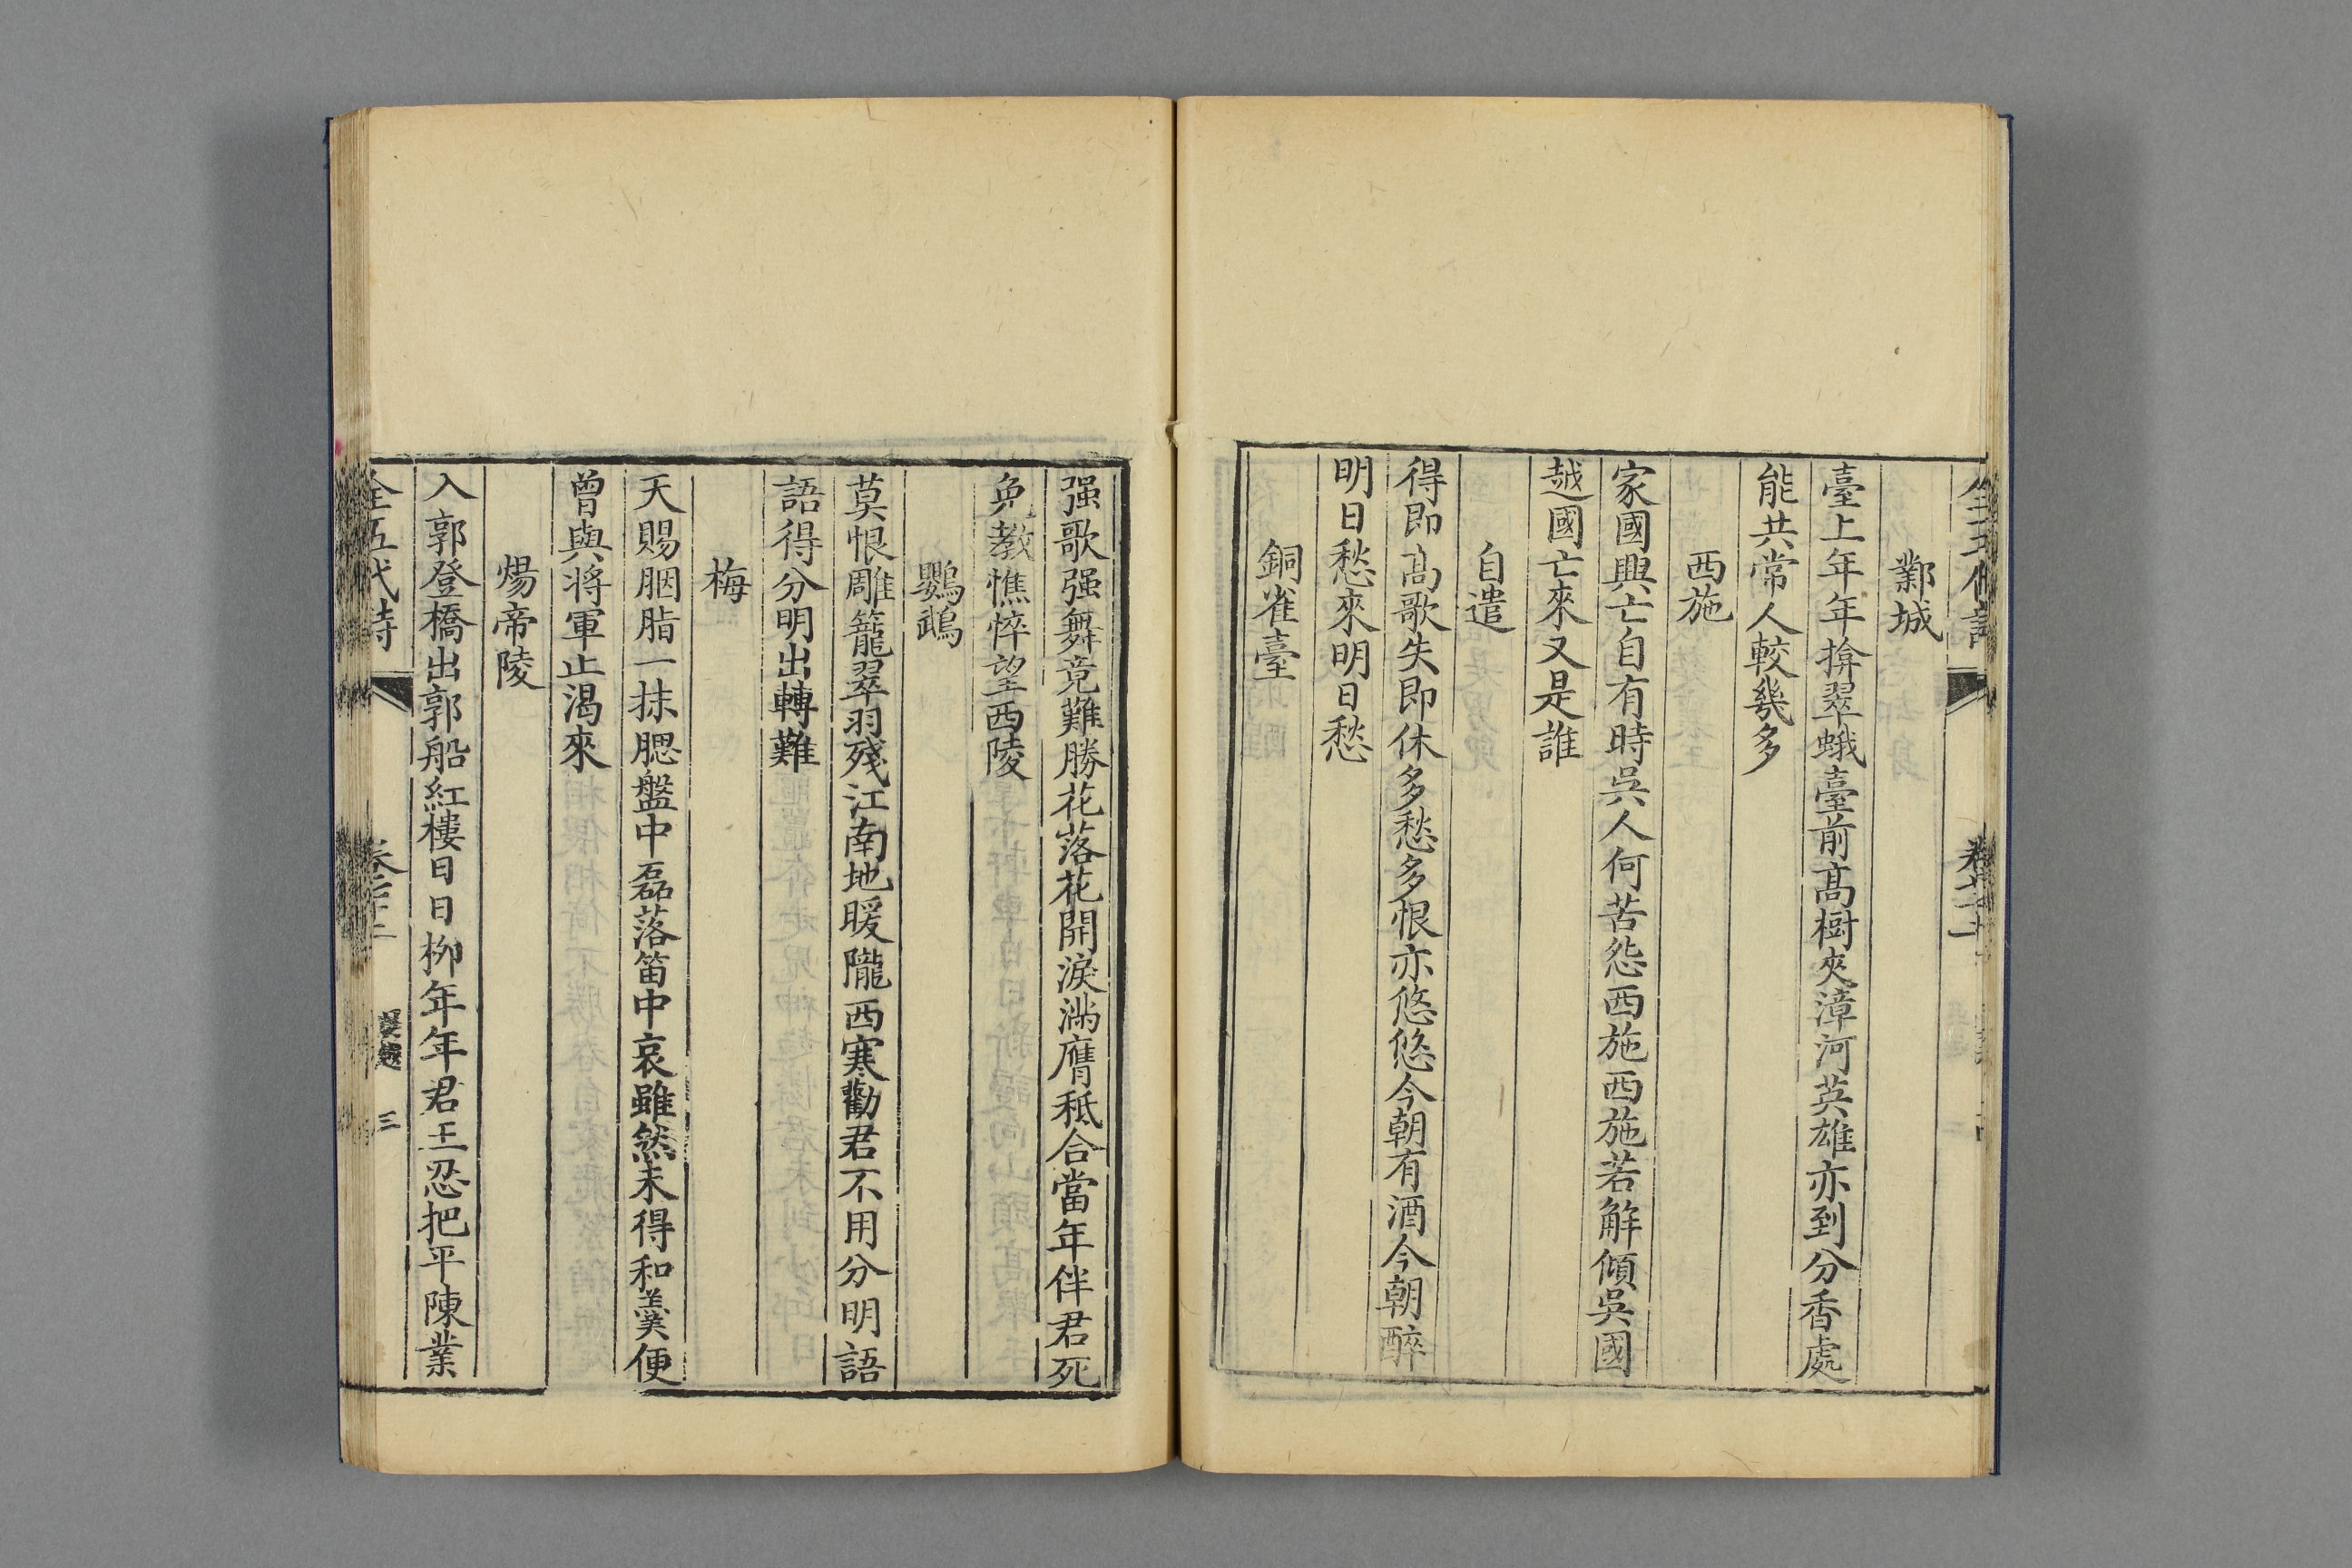 鄴城
臺上年年揜翠蛾臺前髙樹夾漳河英雄亦到分香處
能共常人較㡬多
西施
家國興亡自有時吳人何苦怨西施西施若解傾吳國
越國亡來又是誰
自遣
得即髙歌失即休多愁多恨亦悠悠今朝有酒今朝醉
明日愁來明日愁
銅雀臺
强歌强舞竟難勝花落花開淚滿膺秪合當年伴君死
免教憔悴望西陵
鸚鵡
莫恨雕籠翠羽殘江南地暖隴西寒勸君不用分明語
語得分明出轉難
梅
天賜胭脂一抹腮盤中磊落笛中哀雖然未得和羹便
曾與將軍止渴來
煬帝陵
入郭登橋出郭船紅樓日日柳年年君王忍把平陳業
全五代詩 三